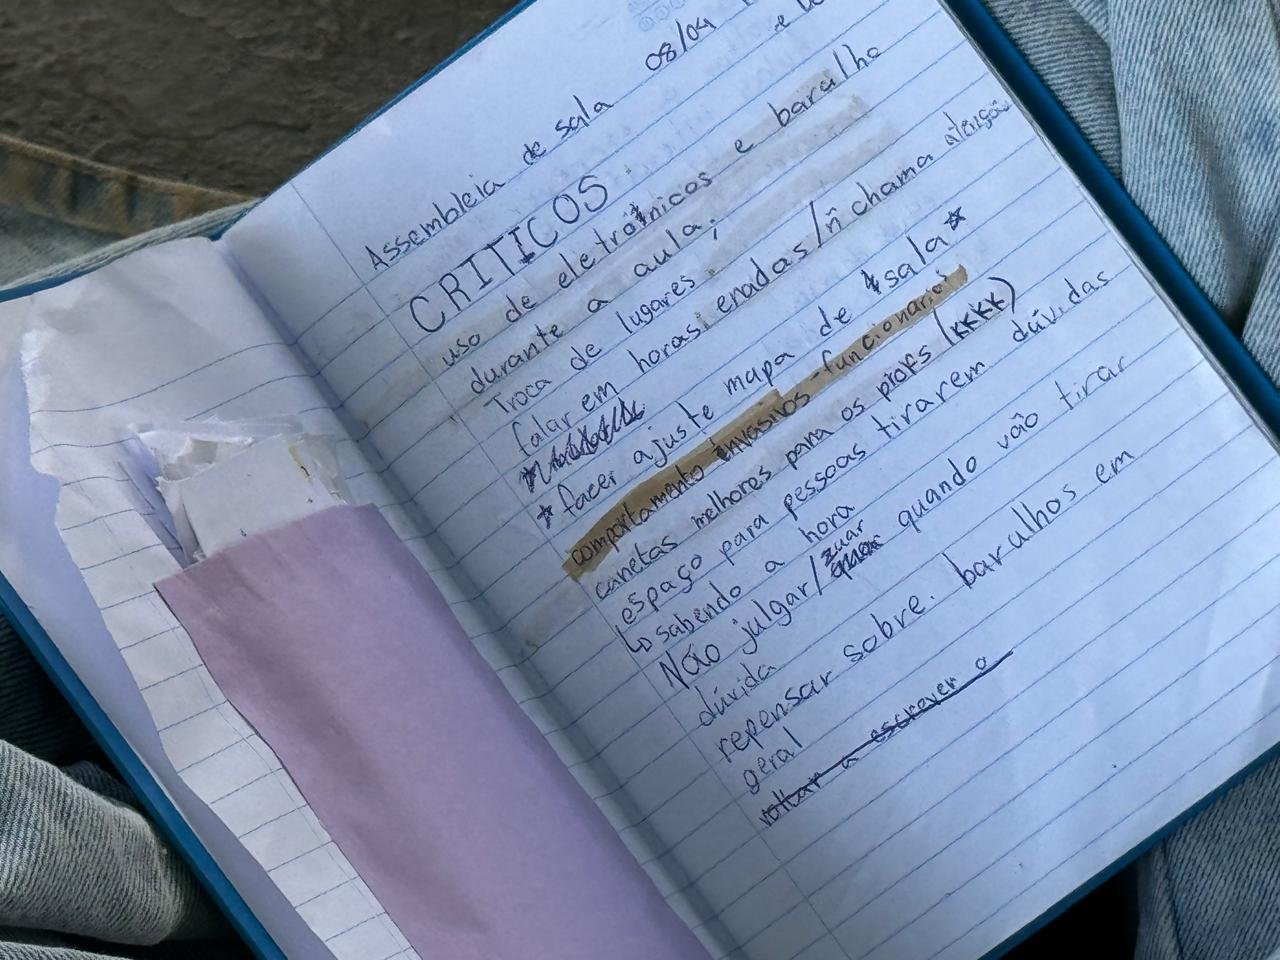 08/04
Assembleia de sala
CRITICOS
uso de eletrônicos e baralho
durante a aula;
Troca de lugares;
falar em horas erradas/ñ chama atenção
* facer ajuste mapa de sala *
comportamento invasivos - funcionario!
canetas melhores para os profs (KKKK)
espaço para pessoas tirarem dúvidas
↳ sabendo a hora
Não julgar/zuar quando vão tirar
dúvida
repensar sobre. barulhos em
geral
voltar a escrever a